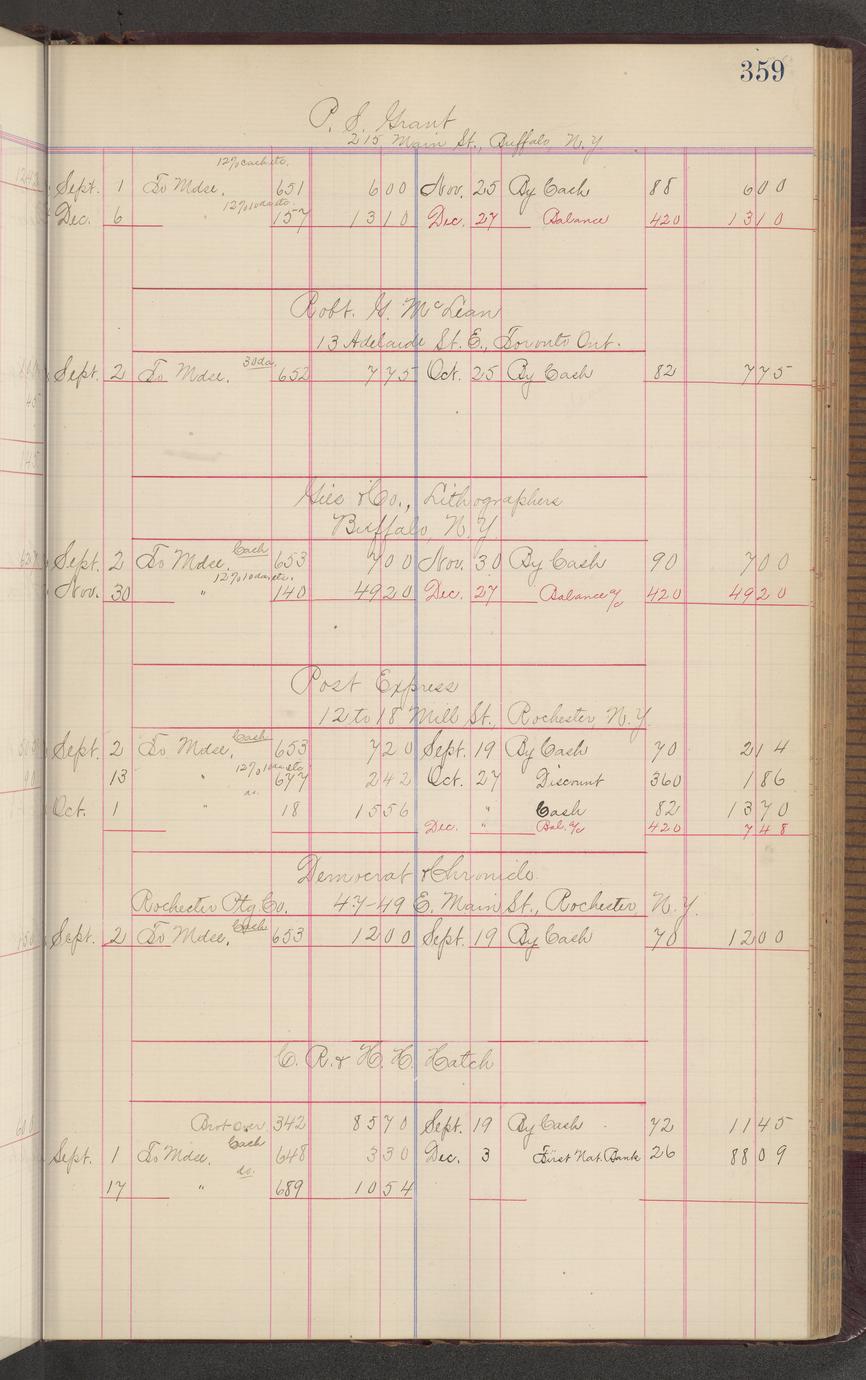 359
P. S. Grant
215 Main St., Buffalo, N.Y
12% cash etc.
Sept. 1 To Mdse. 651 600 Nov. 25 By Cash 88 600
12% 10 da. etc.
Dec. 6 " 157 1310 Dec. 27 Balance 420 1310
Robt. G. McLean
13 Adelaide St. E., Toronto Ont.
Sept. 2 To Mdse. 30 da. 652 775 Oct. 25 By Cash 82 775
Gies & Co., Lithographers
Buffalo, N.Y.
Sept. 2 To Mdse. Cash 653 700 Nov. 30 By Cash 90 700
12% 10 da. etc.
Nov. 30 " 140 4920 Dec. 27 Balance a/c 420 4920
Post Express
12 to 18 Mill St., Rochester, N.Y.
Sept. 2 To Mdse. Cash 653 720 Sept. 19 By Cash 70 214
12% 10 da. etc.
13 " 677 242 Oct. 27 Discount 360 186
do.
Oct. 1 " 18 1556 " Cash 82 1370
Dec. " Bal. a/c 420 748
Democrat & Chronicle
Rochester Ptg Co. 47-49 E. Main St., Rochester, N.Y.
Sept. 2 To Mdse. Cash 653 1200 Sept. 19 By Cash 70 1200
C. R. & H. H. Hatch
Brot over 342 8570 Sept. 19 By Cash 72 1145
Sept. 1 To Mdse. Cash 648 330 Dec. 3 First Nat. Bank 26 8809
do.
17 " 689 1054